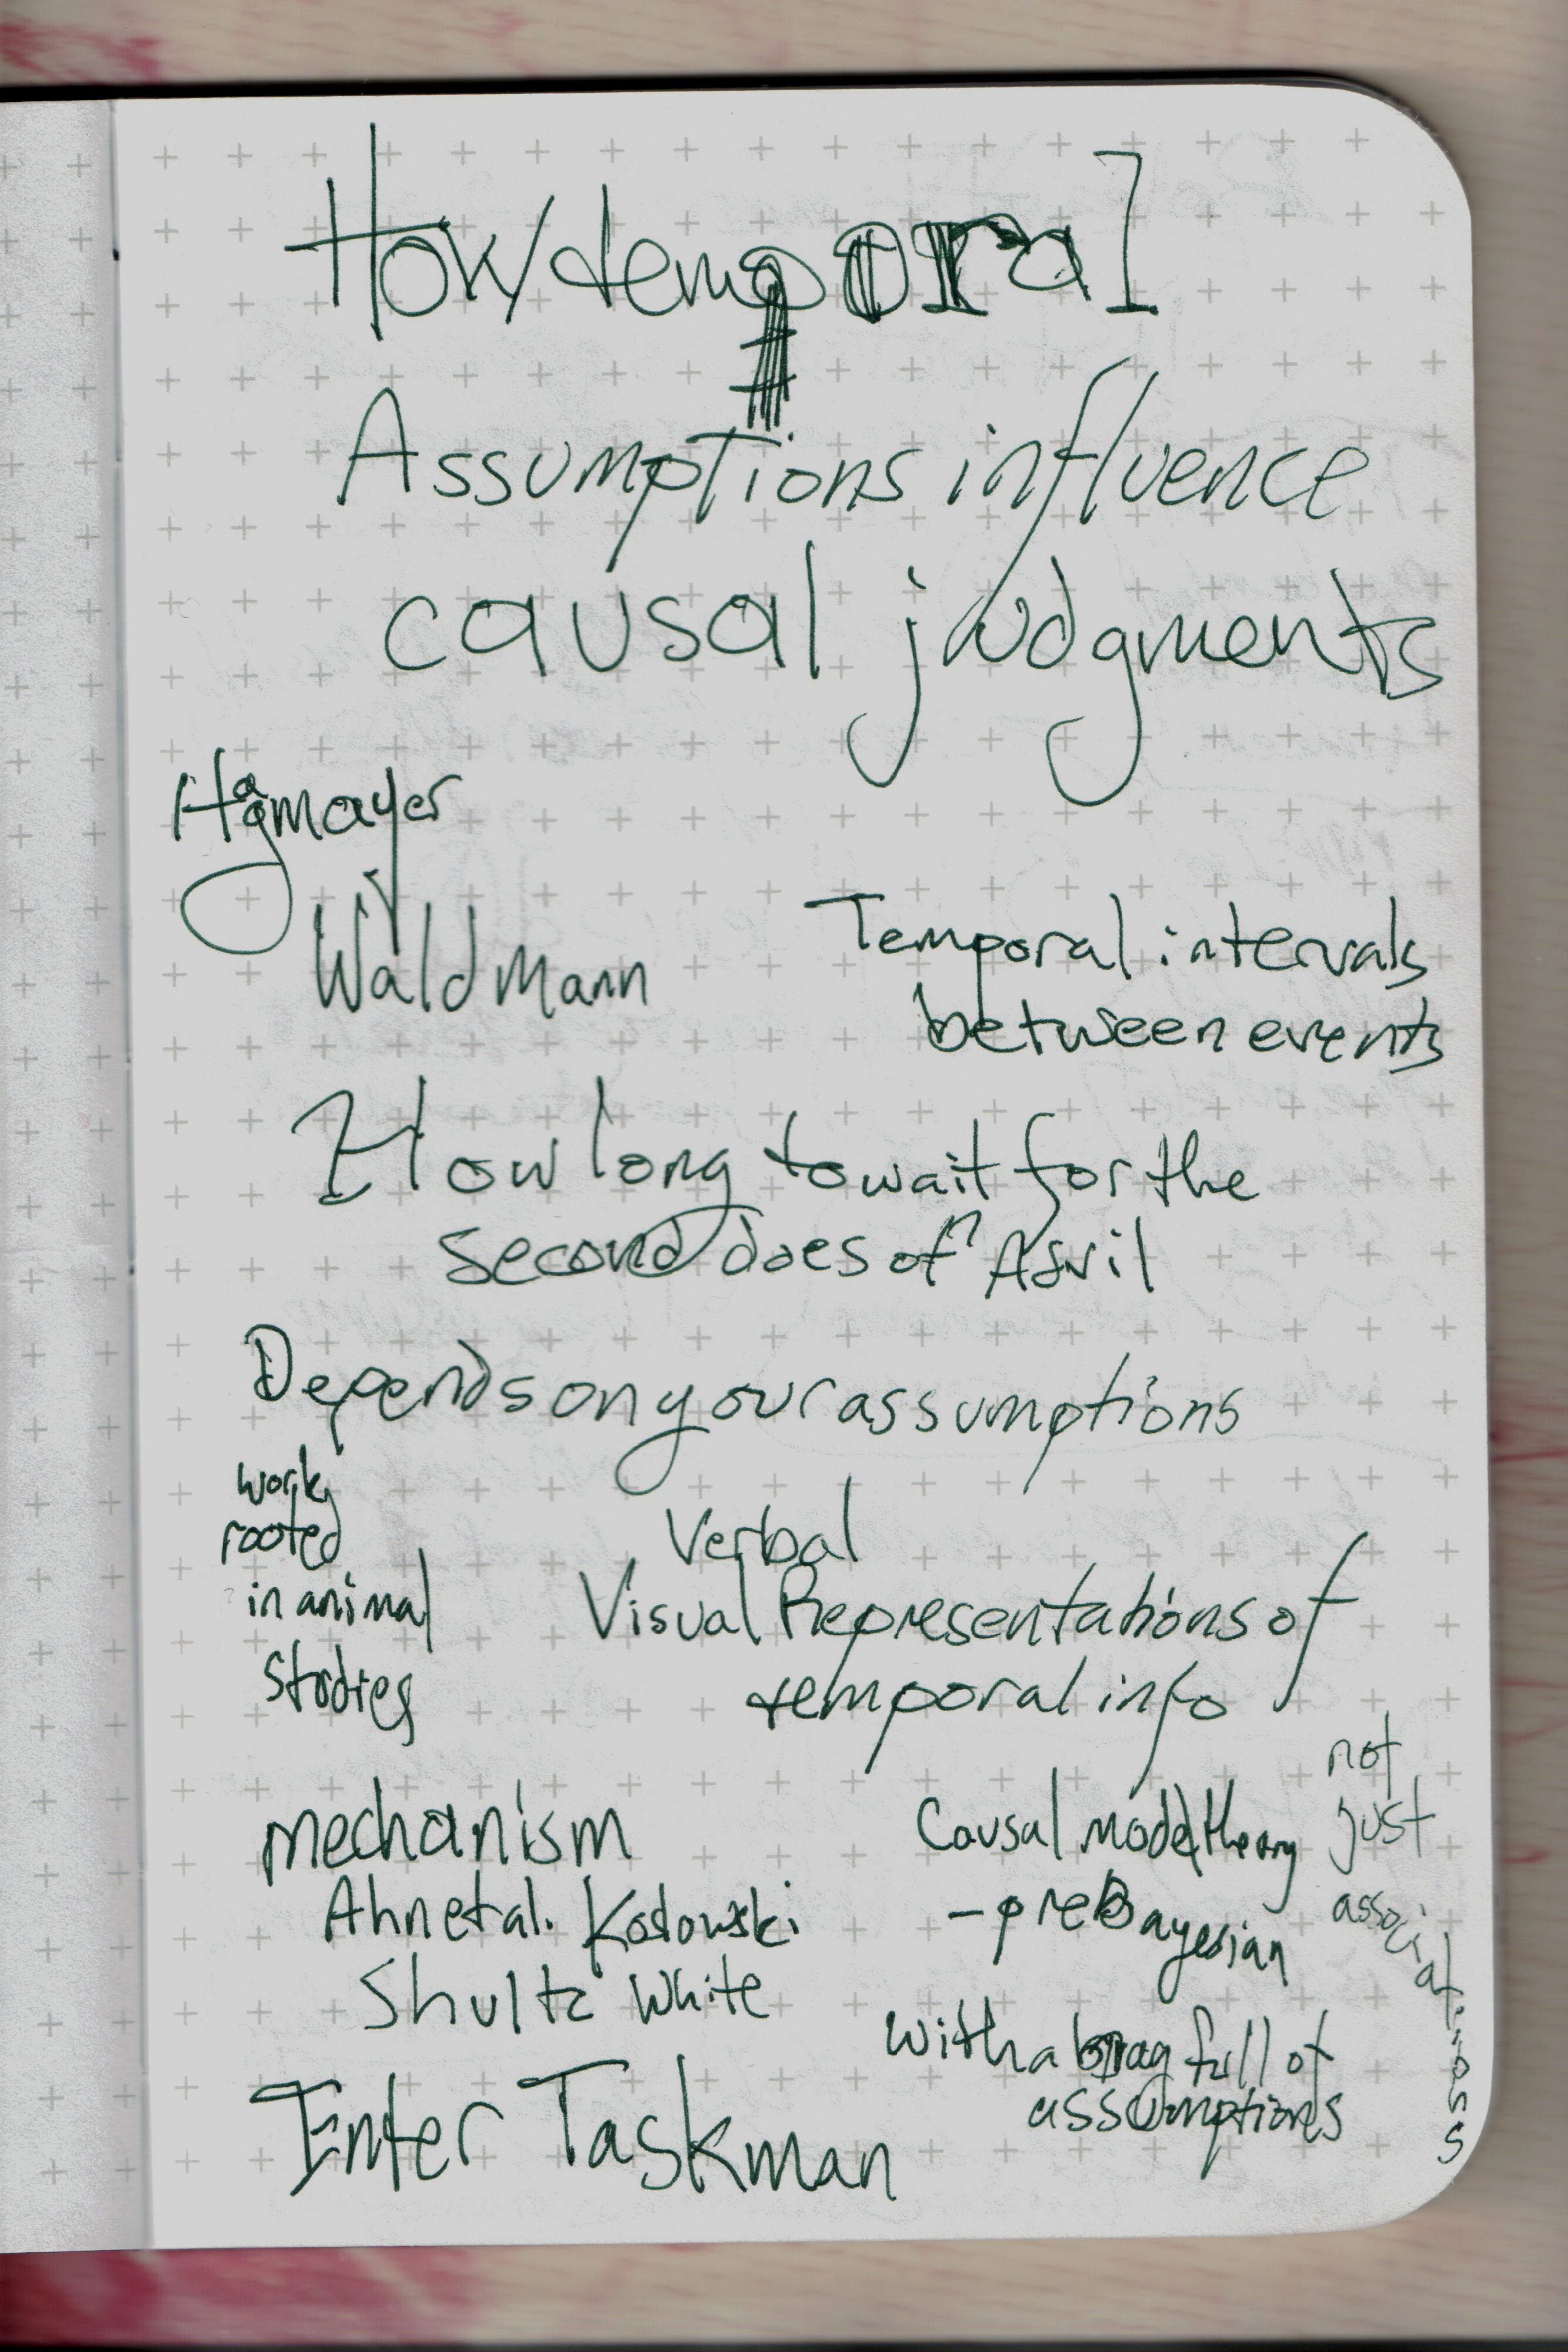 How temporal
Assumptions influence
causal judgments
Hagmayer
Waldmann
Temporal intervals
between events
How long to wait for the
second does of Advil
Depends on your assumptions
work
rooted
in animal
studies
Verbal
Visual Representations of
temporal info
mechanism
Ahn et al. Koslowski
Shultz White
Causal model theory
- preBayesian
with a bag full of
assumptions
not
just
associations
Enter Taskman